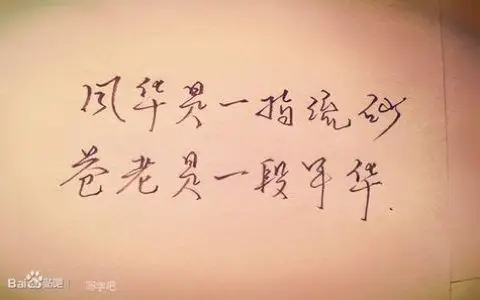 风华是一指流砂
苍老是一段年华.
Bai 贴吧 写字吧